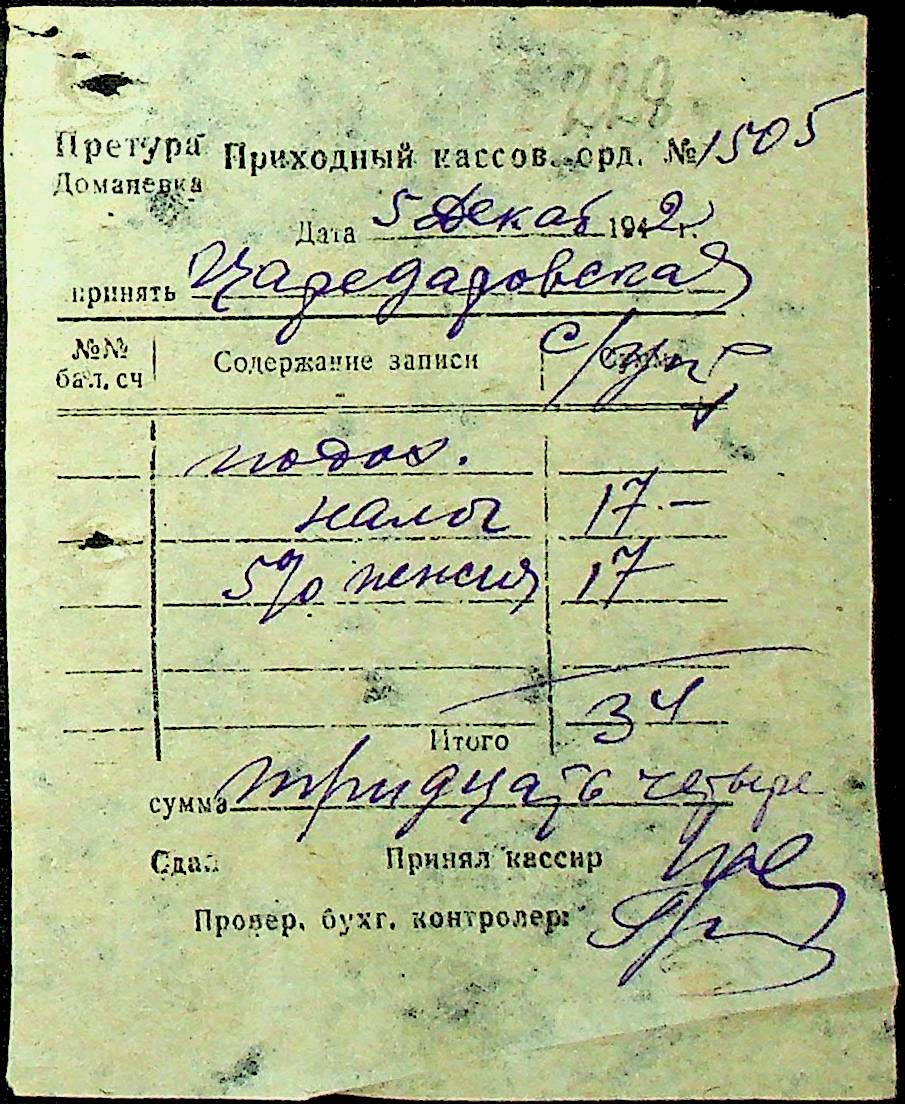 228
Претура Приходный кассов. орд. № 1505
Доманевка
Дата 5 Декаб 1942 г.
принять Царедаровская
№№ бал. сч Содержание записи Сумма
с/уп
подох.
налог 17.—
5% пенсия 17
Итого 34
сумма тридцать четыре
Сдал Принял кассир
Провер. бухг. контролер: